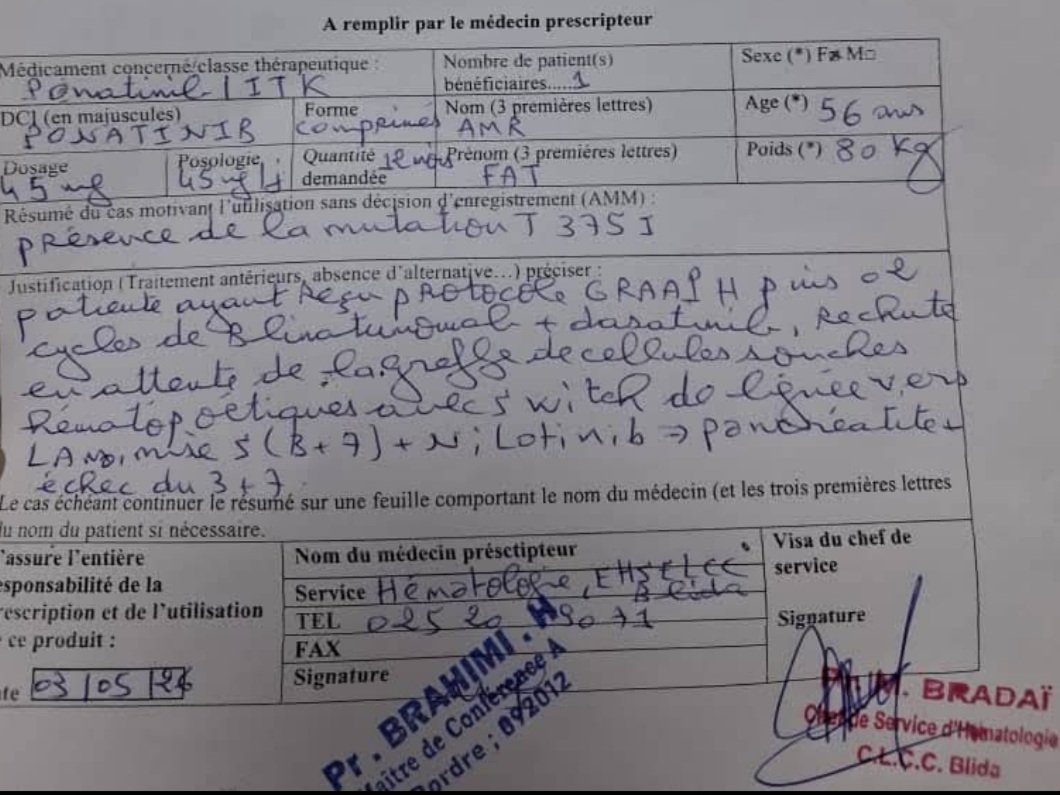 A remplir par le médecin prescripteur
Médicament concerné/classe thérapeutique :
Ponatinib / ITK
Nombre de patient(s)
bénéficiaires.....1
Sexe (*) F☒ M□
DCI (en majuscules)
PONATINIB
Forme
comprimés
Nom (3 premières lettres)
AMR
Age (*) 56 ans
Dosage
45 mg
Posologie
45 mg/j
Quantité 12 mois
demandée
Prénom (3 premières lettres)
FAT
Poids (*) 80 Kg
Résumé du cas motivant l'utilisation sans décision d'enregistrement (AMM) :
présence de la mutation T 375 I
Justification (Traitement antérieurs, absence d'alternative...) préciser :
patiente ayant reçu PROTOCOLE GRAAPH puis 02
cycles de Blinatumomab + dasatinib, Rechute
en attente de la greffe de cellules souches
Hématopoétiques avec switch de lignée vers
LAM, mise s (3+7) + Nilotinib => pancréatite +
échec du 3+7.
Le cas échéant continuer le résumé sur une feuille comportant le nom du médecin (et les trois premières lettres
du nom du patient si nécessaire.
'assure l'entière
esponsabilité de la
rescription et de l'utilisation
ce produit :
te 03/05/26
Nom du médecin présctipteur
Service Hématologie, EHS ELCC
Blida
TEL 025 20 90 71
FAX
Signature
Pr. BRAHIMI. H
Maître de Conférence A
ordre : 092012
Visa du chef de
service
Signature
M. BRADAÏ
Chef de Service d'Hématologie
C.L.C.C. Blida